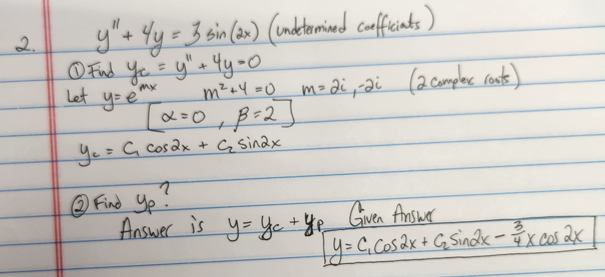 2. y'' + 4y = 3 sin(2x) (undetermined coefficients)
① Find yc = y'' + 4y = 0
Let y = e^mx m² + 4 = 0 m = 2i, -2i (2 complex roots)
[α = 0, β = 2]
yc = C₁ cos2x + C₂ sin2x
② Find yp?
Answer is y = yc + yp Given Answer
y = C₁ Cos 2x + C₂ Sin2x - 3/4 x cos 2x